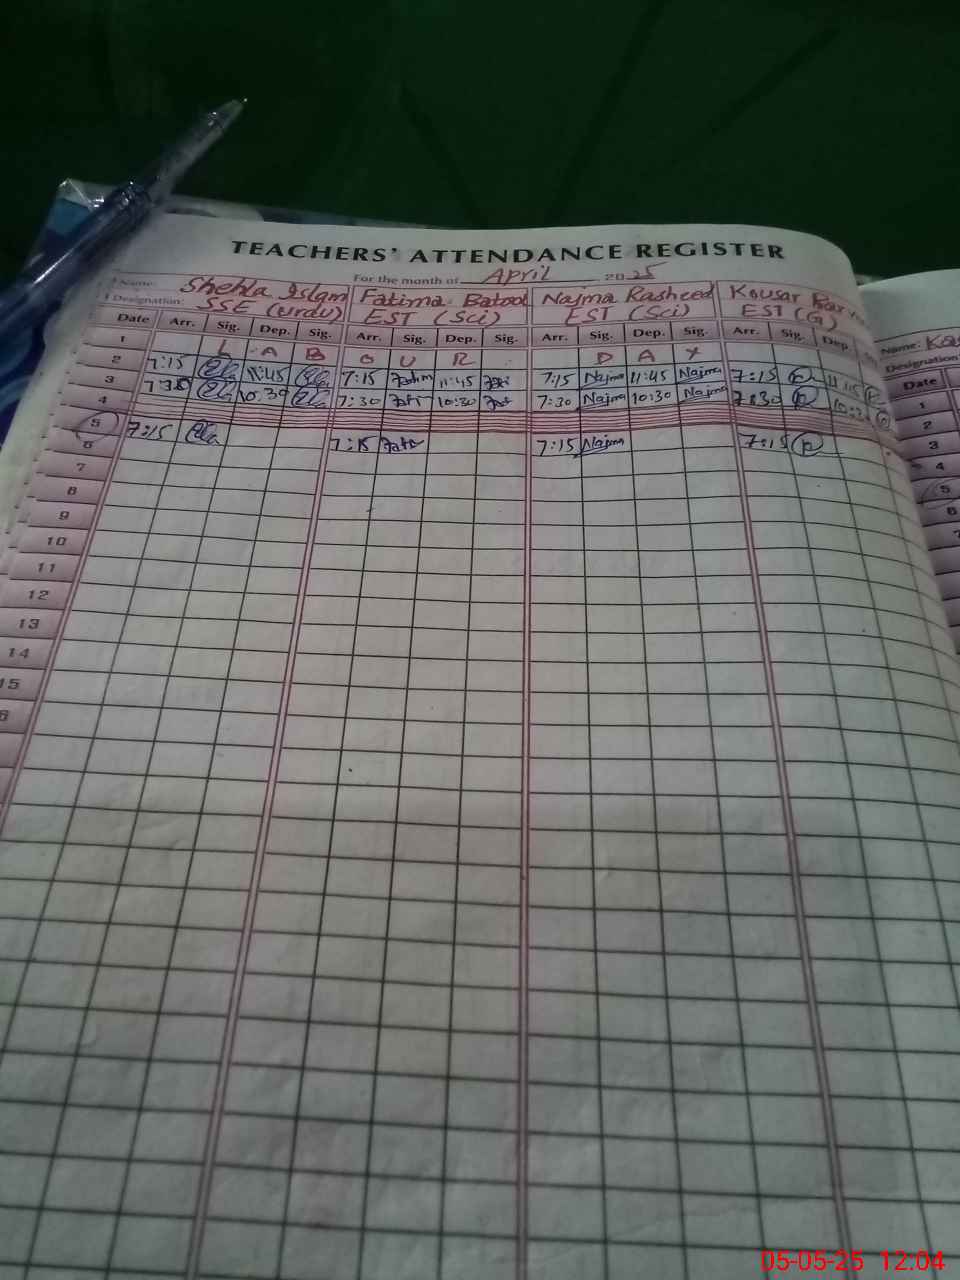 TEACHERS' ATTENDANCE REGISTER
For the month of April 2025
Name: Shehla Islam Fatima Batool Najma Rasheed Kousar
Designation: SSE (Urdu) EST (Sci) EST (Sci) EST (G)
Date Arr. Sig. Dep. Sig. Arr. Sig. Dep. Sig. Arr. Sig. Dep. Sig. Arr. Sig. Dep.
1 L A B O U R D A Y
2 7:15 11:45 7:15 11:45 7:15 Najma 11:45 Najma 7:15 11:45
3 7:30 10:30 7:30 10:30 7:30 Najma 10:30 Najma 7:30
4
5 7:15 7:15 7:15 Najma 7:15
6
7
8
9
10
11
12
13
14
15
Name:
Designation
Date
1
2
3
4
5
6
05-05-25 12:04